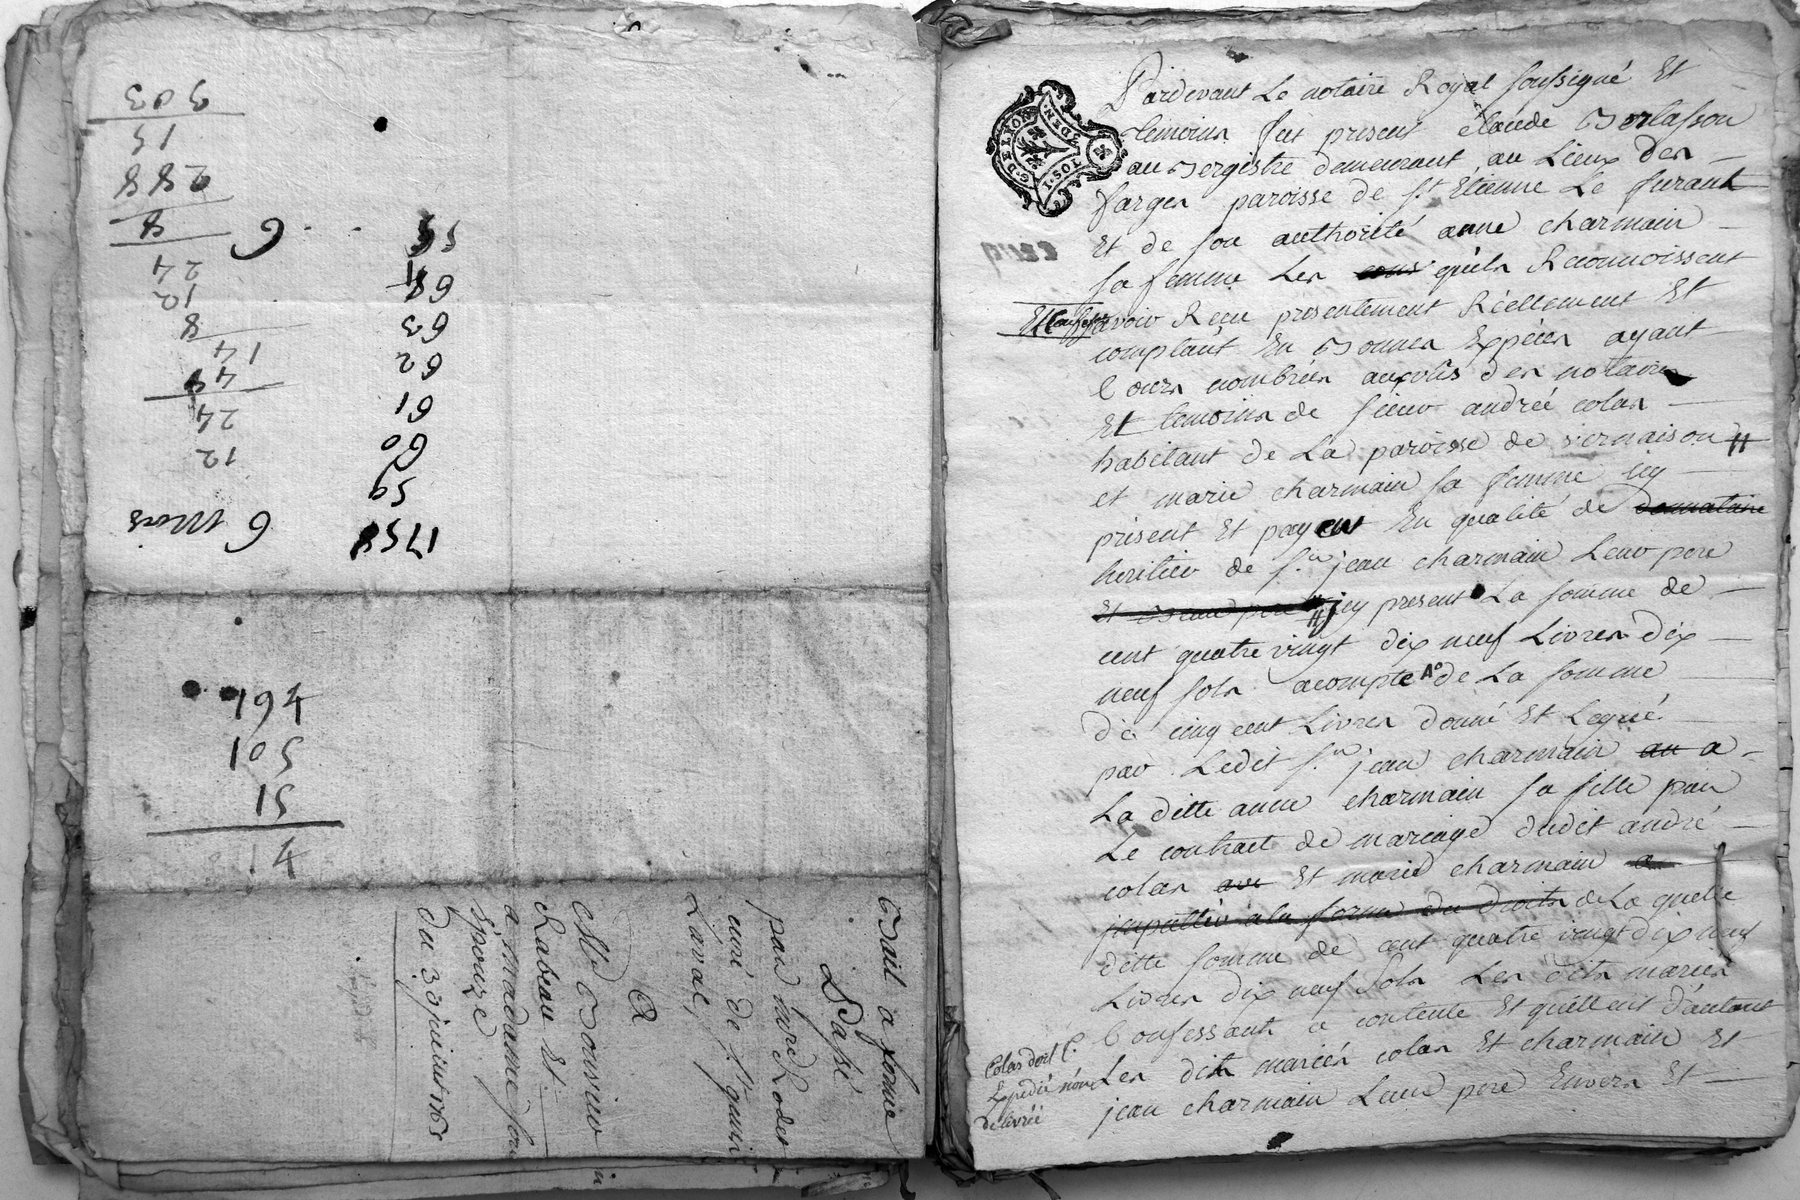 303
15
288
8
24
12
8
14
48
24
12
6 Mois
6
55
64
63
62
61
60
59
1758
461
501
51
41
Bail a ferme
Passé
par
curé de St
Laval,
A
Mr
Rabeau Et
a madame son
Epouze
Du 30 juin 1765
G. DE LYON
1. SOL 5 DEN.
Pardevant Le notaire Royal soussigné Et
temoins fut present claude
demeurant au Lieux des
farges paroisse de St Etienne Le furant
Et de son authorité anne charmain
sa femme Les quels Reconnoissent
avoir Receu presentement Réellement Et
comptant En bonnes Espèces ayant
Cours nombrées aux vûs des notaires
Et temoins de sieur andréé colas
habitant de La paroisse de vernaison
et marie charmain sa femme icy
present Et payent En qualité de donnataire
heritier de sr jean charmain Leur pere
icy present La somme de
cent quatre vingt dix neuf Livres dix
neuf sols acompte de La somme
de cinq cent Livres donné Et Legué
par Ledit sr jean charmain au a
La ditte anne charmain sa fille par
Le contract de mariage dudit andré
colas ave Et marie charmain a
a la forme du droits de La quelle
ditte somme de cent quatre vingt dix neuf
Livres dix neuf sols Les dits mariés
Confessant ce contente Et quittent d'autant
Les dits mariés colas Et charmain Et
jean charmain Leur pere Envers Et
Colas doit C.
Expedié non
delivréé